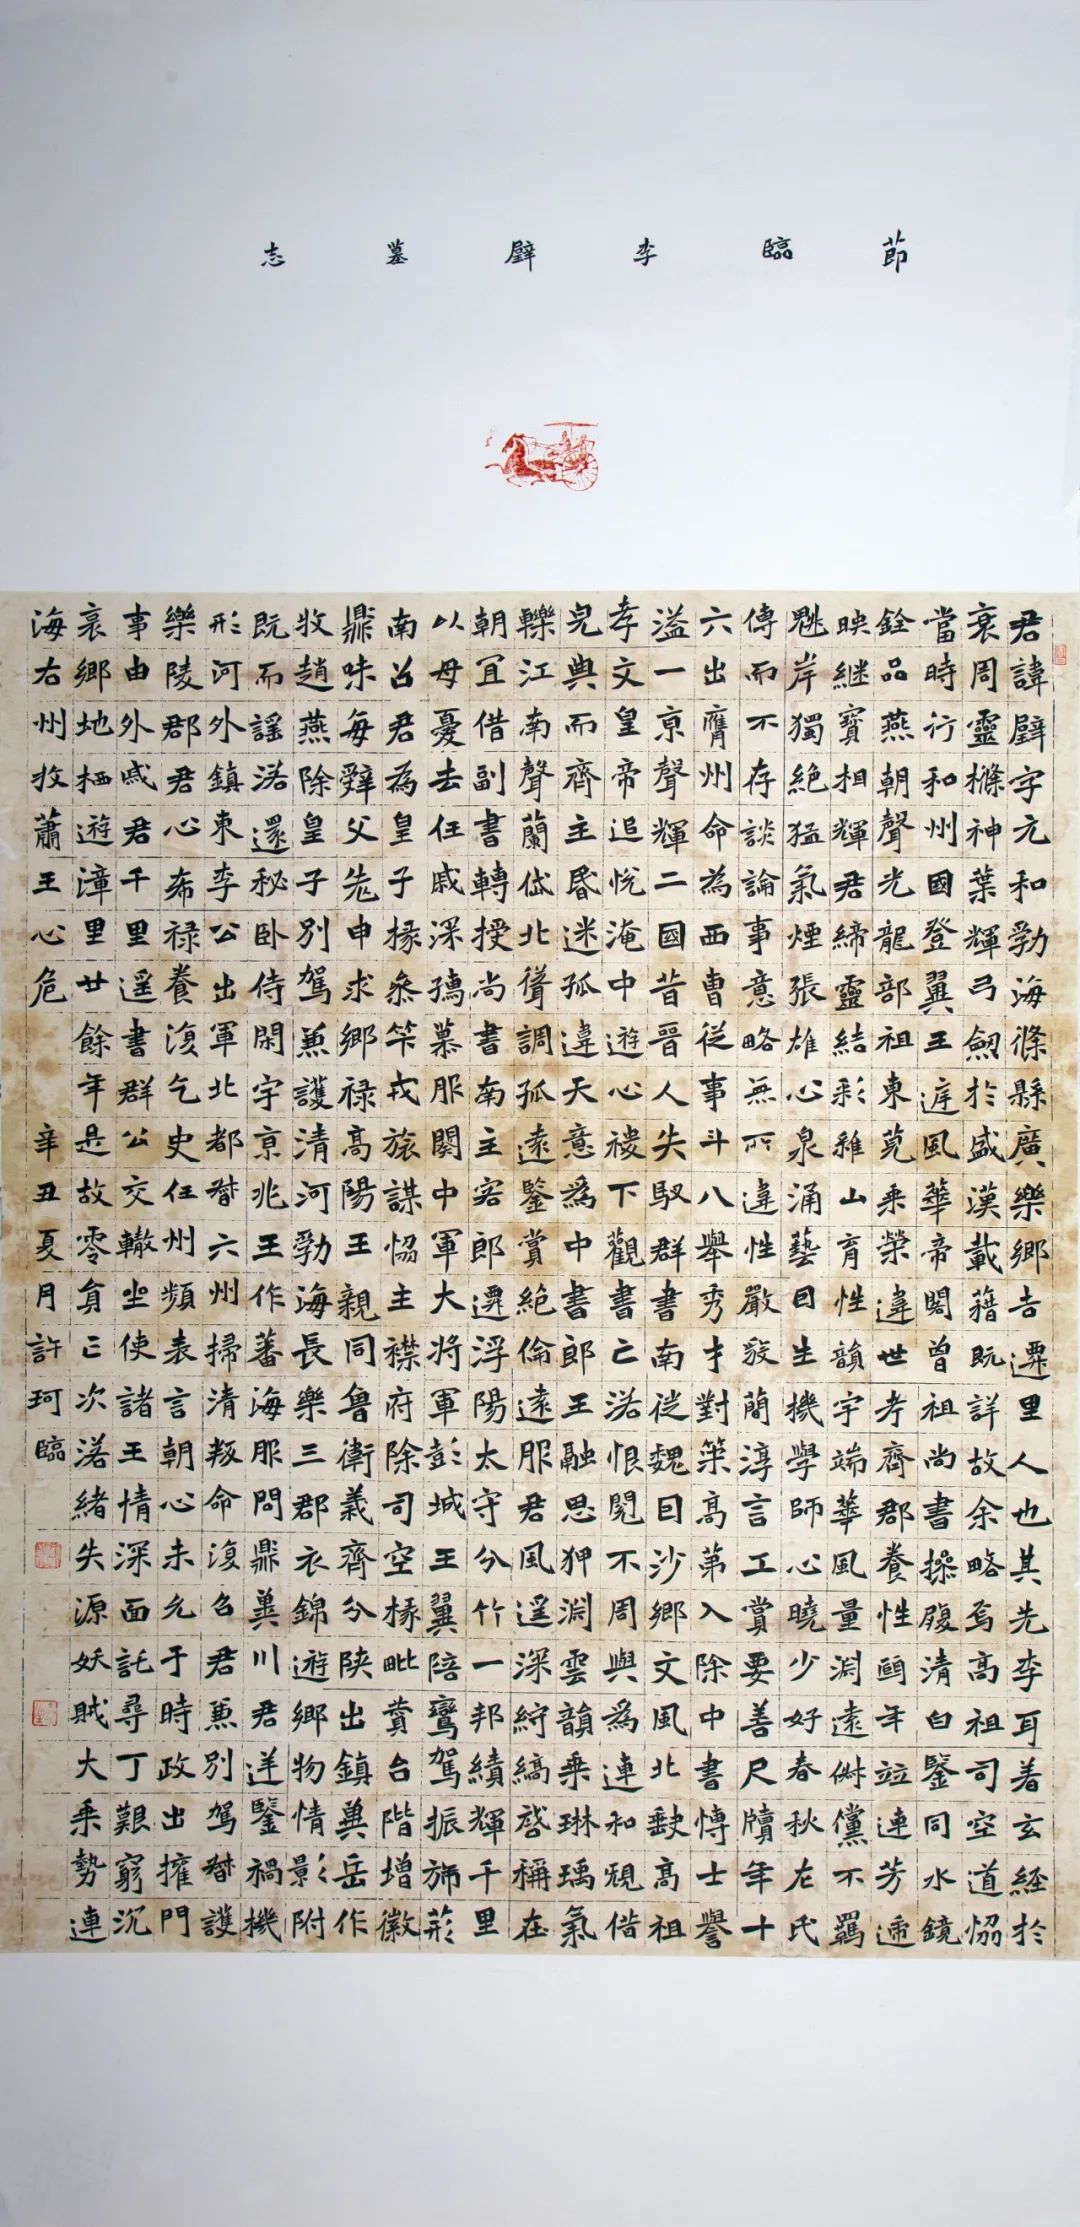 節臨李璧墓志
君諱璧字元和勃海條縣廣樂鄉吉遷里人也其先李耳著玄經於
衰周靈樤神葉輝弓劒於盛漢載藉既詳故余略焉高祖司空道恊
當時行和州國登翼王庭風華帝閣曾祖尚書操履清白鑒同水鏡
銓品燕朝聲光龍部祖東莞乘榮違世考齊郡養性頤年竝連芳遞
映繼寶相輝君締靈結彩維山育性韻宇端華風量淵遠倜儻不羈
魁岸獨絕猛氣煙張雄心泉涌藝因生機學師心曉少好春秋左氏
傳而不存談論事意略無所違性嚴毅簡淳言工賞要善尺牘年十
六出膺州命為西曹從事斗八舉秀才對策高第入除中書博士譽
溢一京聲輝二國昔晉人失馭群書南從魏因沙鄉文風北缺高祖
孝文皇帝追悅淹中遊心禝下觀書亡落恨閱不周與為連和規借
完典而齊主昬迷孤違天意為中書郎王融思狎淵雲韻乘琳瑀氣
轢江南聲蘭岱北聳調孤遠鑒賞絕倫遠服君風遥深紵縞啓稱在
朝宜借副書轉授尚書南主客郎遷浮陽太守分竹一邦績輝千里
以母憂去任戚深孺慕服闋中軍大將軍彭城王翼陪鑾駕振旆荊
南召君為皇子掾參筭戎旅謀恊主襟府除司空掾毗贊台階增徽
鼎味每辭父老申求鄉祿高陽王親同魯衛義齊分陝出鎮冀岳作
牧趙燕除皇子別駕兼護清河勃海長樂三郡衣錦遊鄉物情影附
既而謠落還秘臥侍閑宇京兆王作蕃海服問鼎冀川君逆鑒禍機
形河外鎮東李公出軍北都督六州掃清叛命復召君兼別駕督護
樂陵郡君心希祿養復乞史任州頻表言朝心未允于時政出擁門
事由外戚君千里遥書群公交轍坐使諸王情深面託尋丁艱窮沉
哀鄉地栖遊漳里廿餘年是故零負亡次落緒失源妖賊大乘勢連
海右州牧蕭王心危
辛丑夏月許珂臨